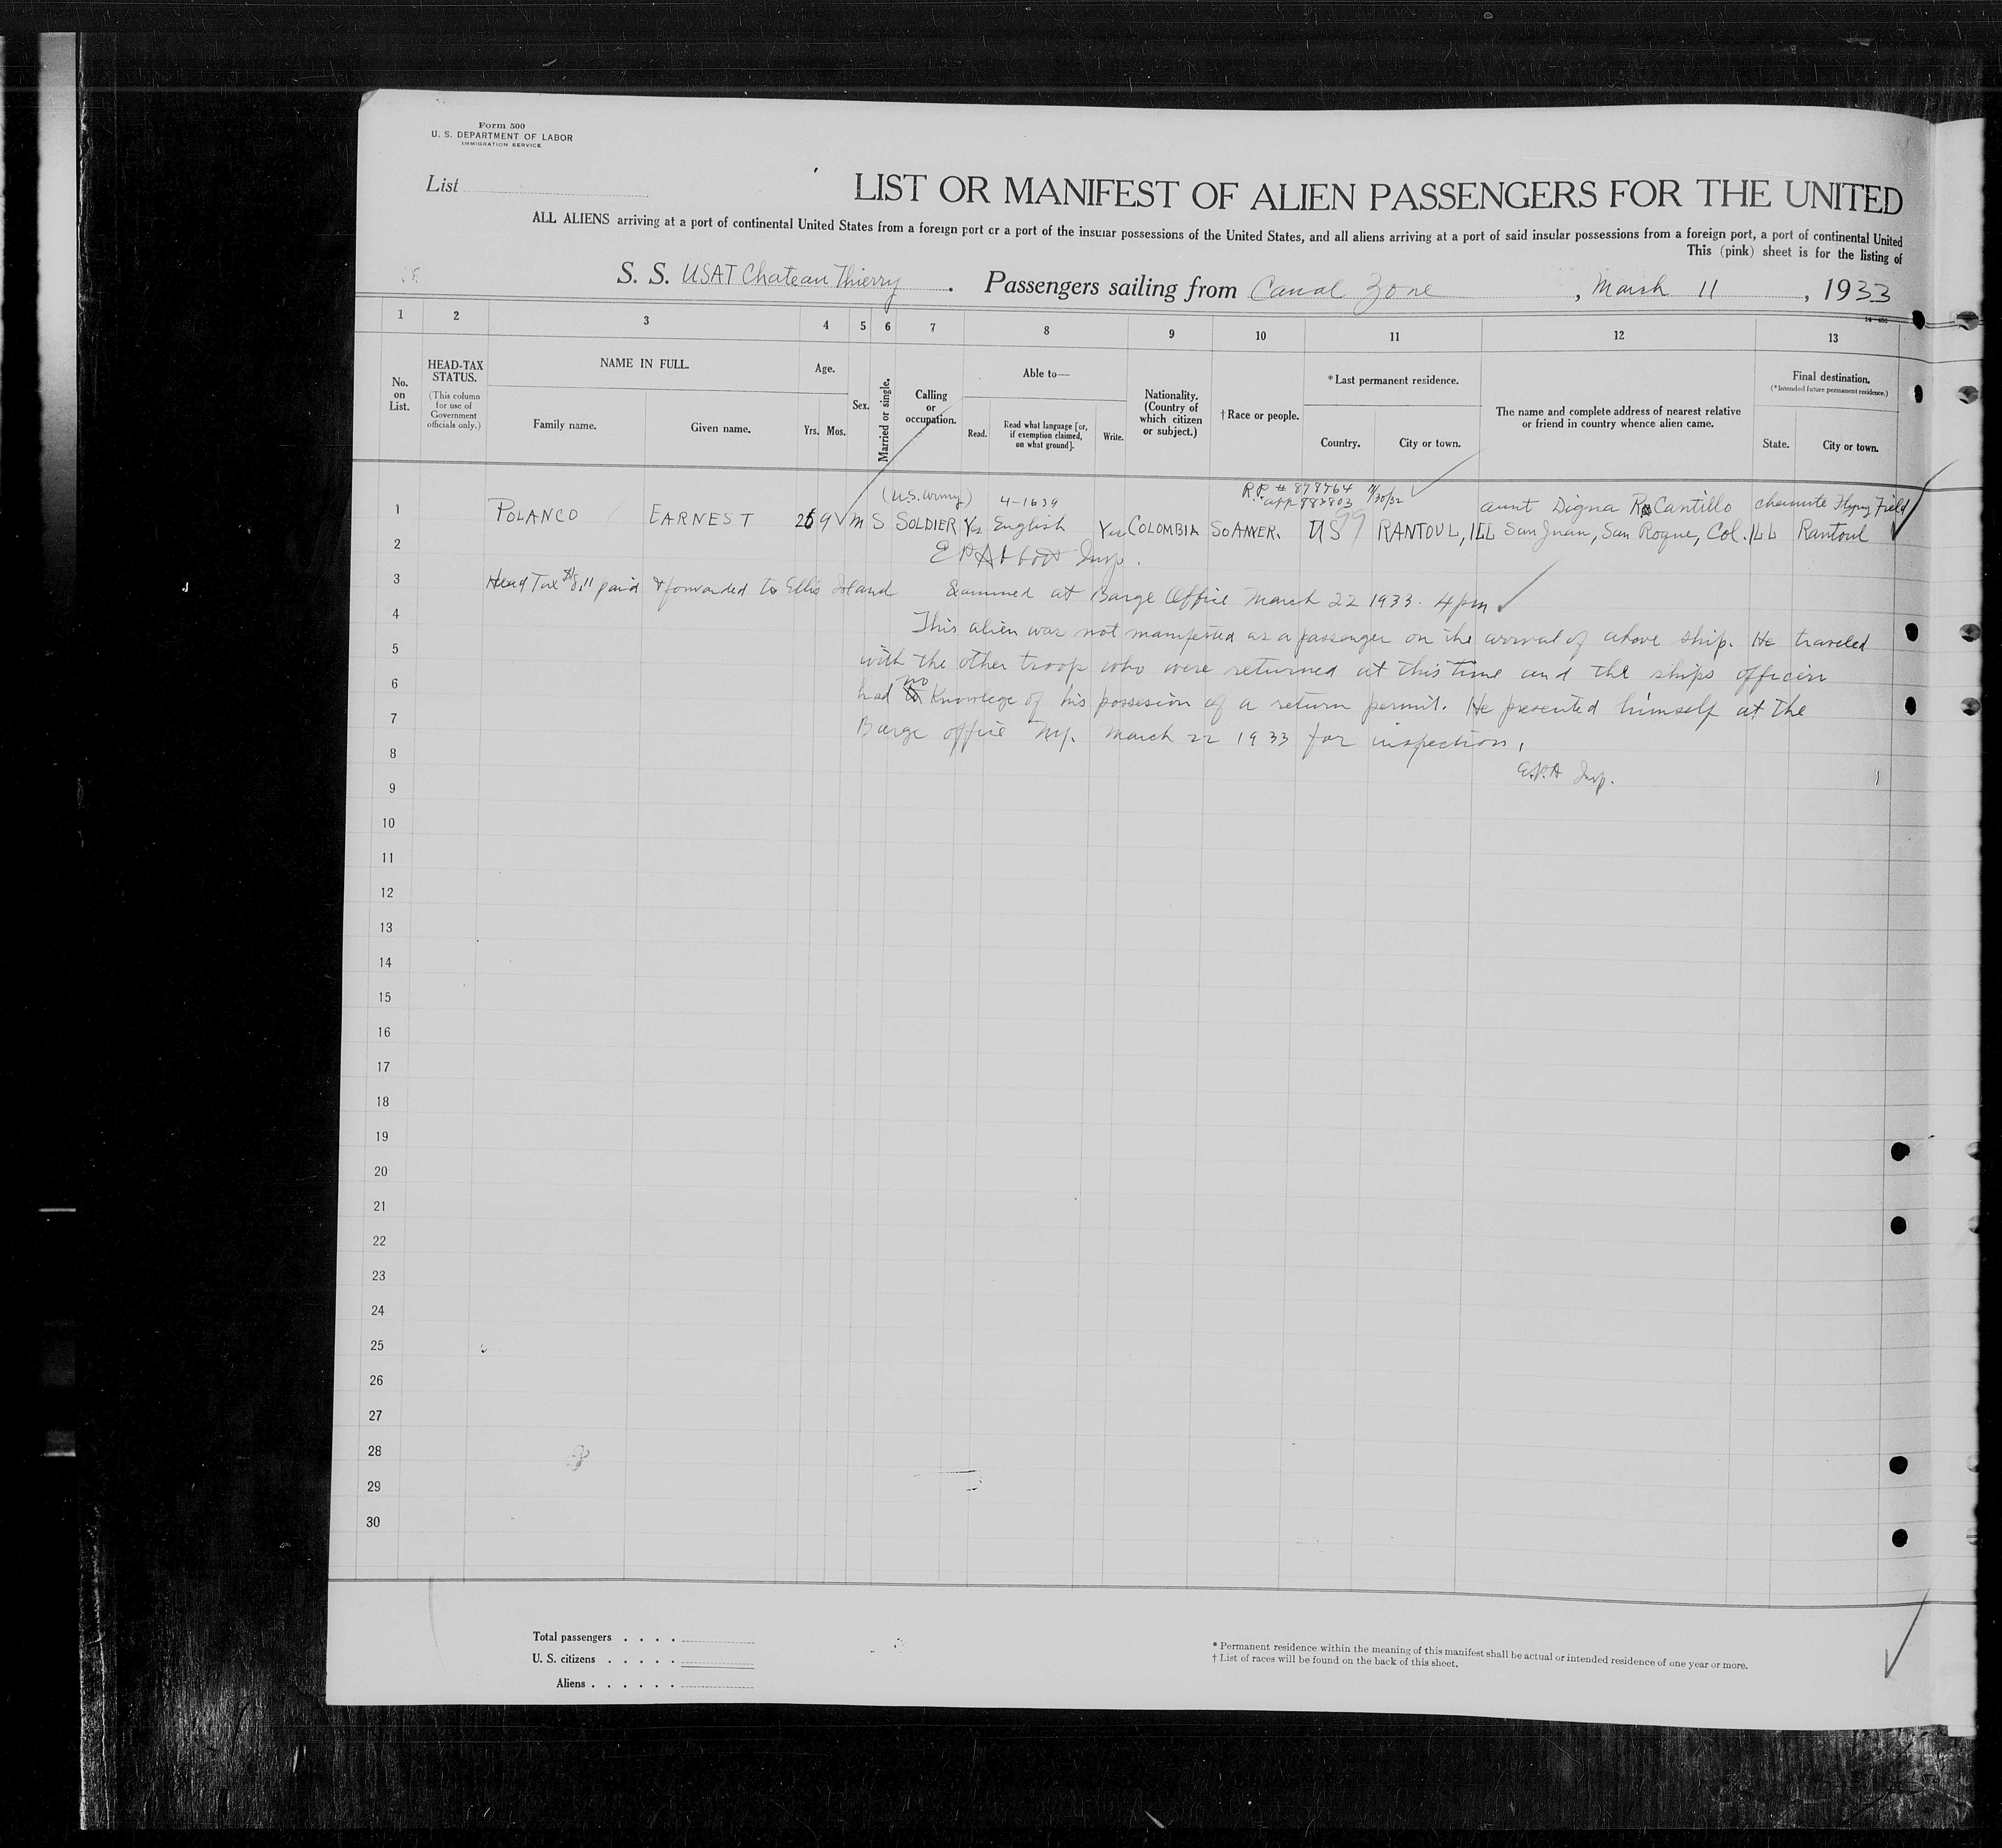 Form 500
U. S. DEPARTMENT OF LABOR
IMMIGRATION SERVICE
List
LIST OR MANIFEST OF ALIEN PASSENGERS FOR THE UNITED
ALL ALIENS arriving at a port of continental United States from a foreign port or a port of the insular possessions of the United States, and all aliens arriving at a port of said insular possessions from a foreign port, a port of continental United
This (pink) sheet is for the listing of
S. S. USAT Chateau Thierry . Passengers sailing from Canal Zone , March 11 , 1933
1 2 3 4 5 6 7 8 9 10 11 12 13
No. on List.
HEAD-TAX STATUS.
(This column for use of Government officials only.)
NAME IN FULL.
Family name. Given name.
Age.
Yrs. Mos.
Sex.
Married or single.
Calling or occupation.
Able to—
Read. Read what language [or, if exemption claimed, on what ground]. Write.
Nationality. (Country of which citizen or subject.)
†Race or people.
*Last permanent residence.
Country. City or town.
The name and complete address of nearest relative or friend in country whence alien came.
Final destination.
(*Intended future permanent residence.)
State. City or town.
(U.S. Army) 4-1639 R.P. # 878764 11/30/32
app 983803
aunt Digna Cantillo chanute Flying Field
1 POLANCO EARNEST 26 9 M S SOLDIER Yes English Yes COLOMBIA SO AMER. US RANTOUL, ILL San Juan, San Roque, Col. ILL Rantoul
2 E P Abbott Insp.
3 Head Tax $8.11 paid & forwarded to Ellis Island Examined at Barge Office March 22 1933. 4pm
4 This alien was not manifested as a passenger on the arrival of above ship. He traveled
5 with the other troop who were returned at this time and the ships officers
6 had no knowlege of his possesion of a return permit. He presented himself at the
7 Barge office N.Y. March 22 1933 for inspection.
8 E.P.A Insp.
9
10
11
12
13
14
15
16
17
18
19
20
21
22
23
24
25
26
27
28
29
30
Total passengers . . . .
U. S. citizens . . . . .
Aliens . . . . . .
* Permanent residence within the meaning of this manifest shall be actual or intended residence of one year or more.
† List of races will be found on the back of this sheet.